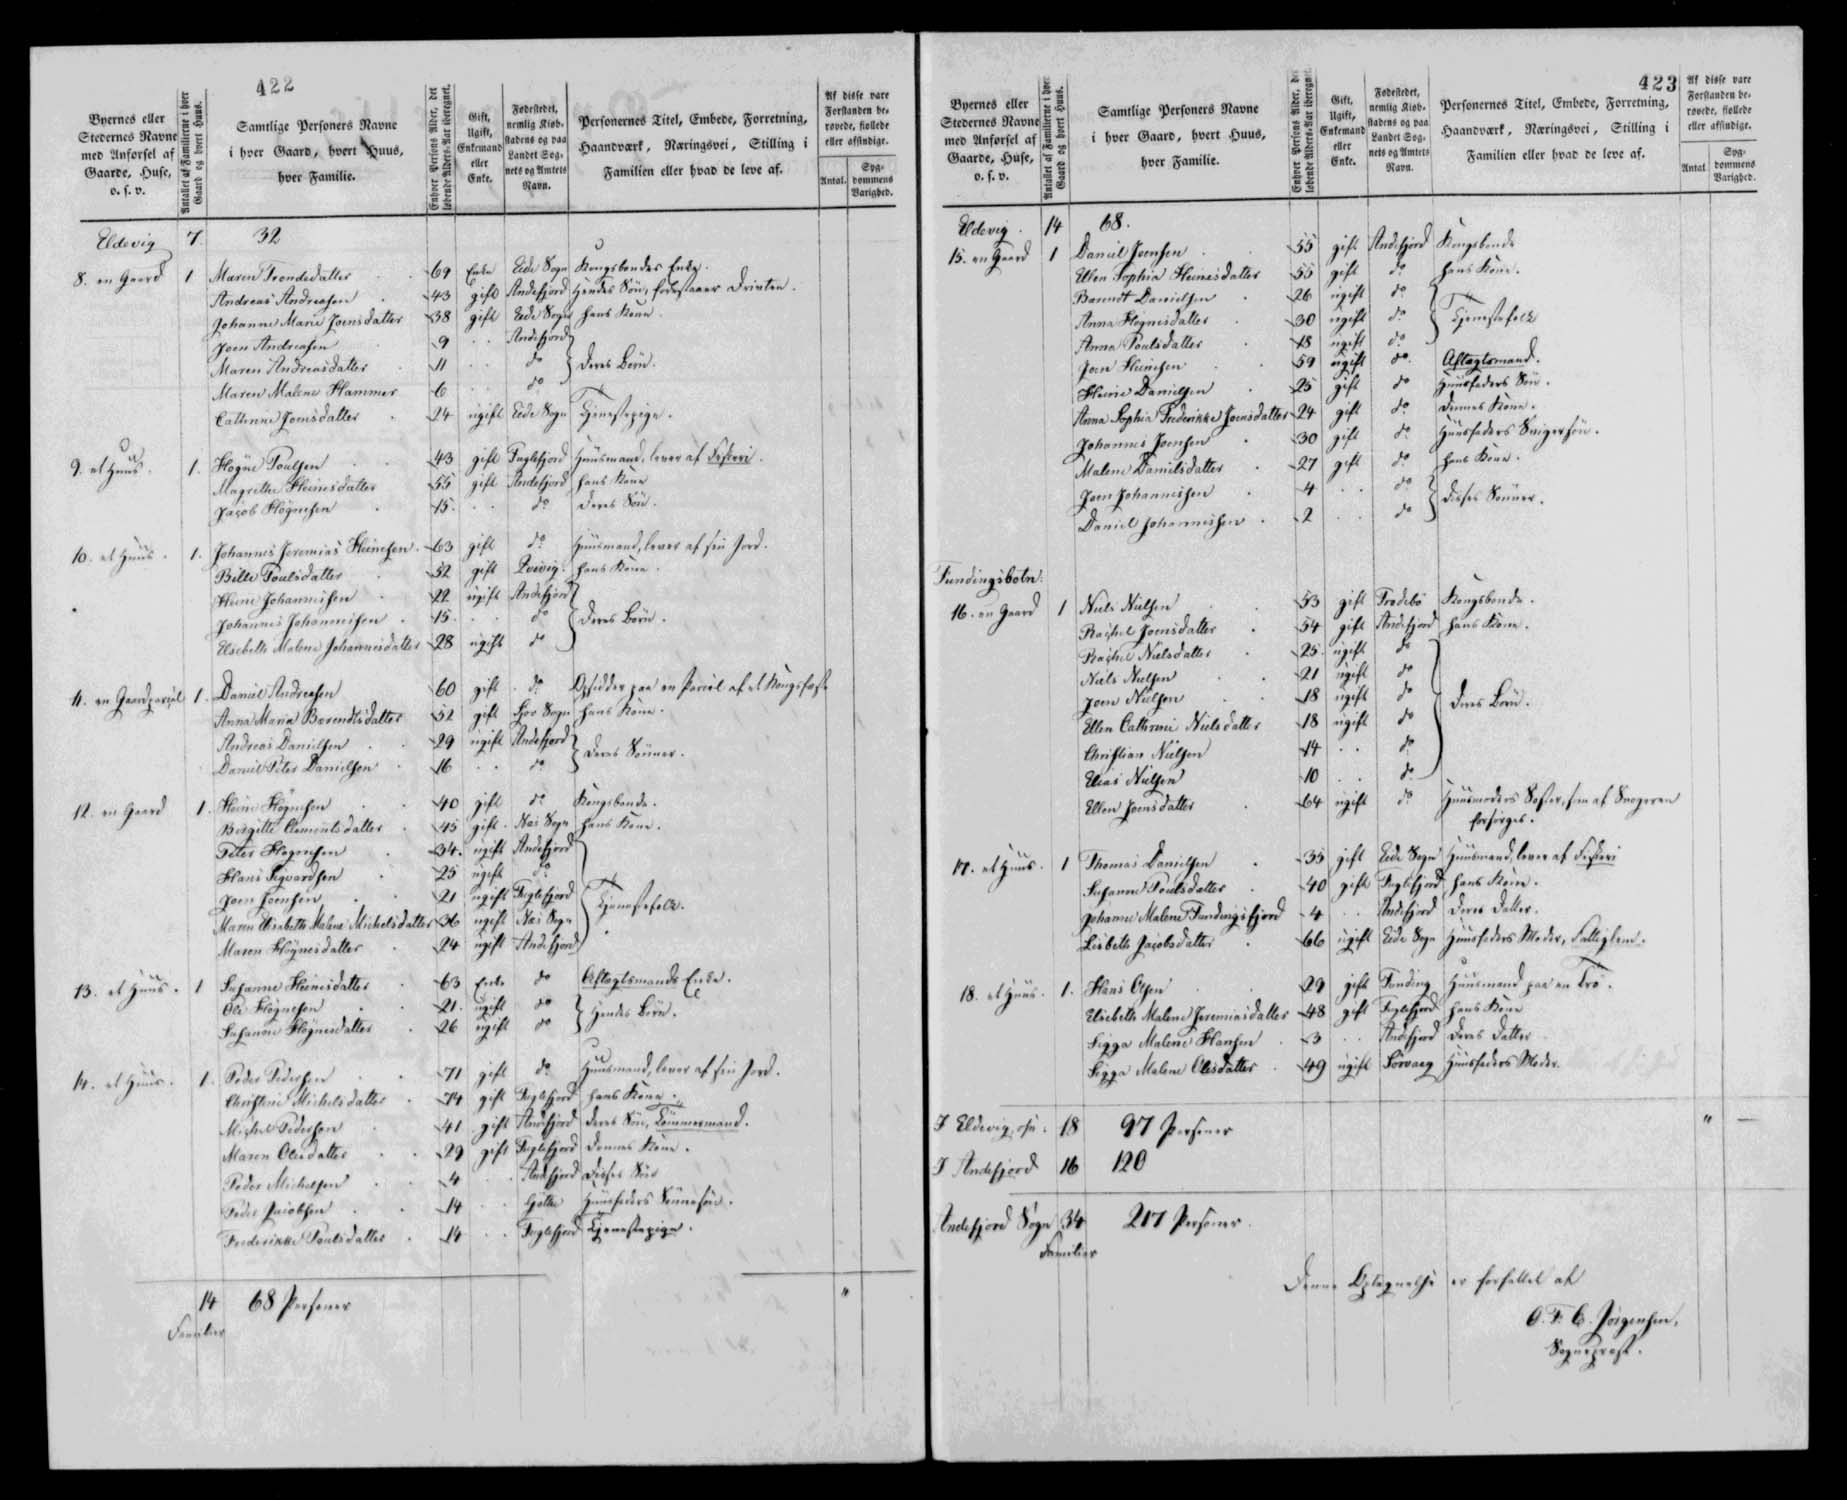 422
Byernes eller Stedernes Navne med Anførsel af Gaarde, Huse, o. s. v.
Antallet af Familierne i hver Gaard og hvert Huus.
Samtlige Personers Navne i hver Gaard, hvert Huus, hver Familie.
Enhver Persons Alder, det løbende Alders-Aar iberegnet.
Gift, Ugift, Enkemand eller Enke.
Fødestedet, nemlig Kiøbstadens og paa Landet Sognets og Amtets Navn.
Personernes Titel, Embede, Forretning, Haandværk, Næringsvei, Stilling i Familien eller hvad de leve af.
Af disse vare Forstanden berøvede, fjollede eller afsindige.
Antal.
Sygdommens Varighed.
Eldevig 7. 32
8. en Gaard 1 Maren Trondsdatter 69 Enke Eide Sogn Kongsbondes Enke.
Andreas Andreasen 43 gift Andefjord Hendes Søn, forestaaer Driften.
Johanne Marie Joensdatter 38 gift Eide Sogn hans Kone.
Joen Andreasen 9 Andefjord
Maren Andreasdatter 11 do Deres Börn.
Maren Malene Hammer 6 do
Cathrine Joensdatter 24 ugift Eide Sogn Tjenestepige.
9. et Huus. 1. Högne Poulsen 43 gift Fuglefjord Huusmand, lever af Fiskeri.
Magrethe Heinesdatter 55 gift Andefjord hans Kone
Jacob Högnesen 15. do deres Sön.
10. et Huus. 1. Johannes Jeremias Heinesen 63 gift do Huusmand, lever af sin Jord.
Bille Poulsdatter 52 gift Qvivig. hans Kone.
Heine Johannesen 22 ugift Andefjord
Johannes Johannesen 15. do Deres Börn.
Elsebeth Malene Johannesdatter 28 ugift do
11. en Gaardparcel 1. Daniel Andreasen 60 gift do Opsidder paa en Parcel af et Kongsfæste
Anna Maria Barendtsdatter 52 gift Hvo Sogn hans Kone.
Andreas Danielsen 29 ugift Andefjord Deres Sönner.
Daniel Peter Danielsen 16 do
12. en Gaard 1. Heine Högnesen 40 gift do Kongsbonde.
Birgitte Clementsdatter 45 gift Næs Sogn hans Kone.
Peter Högnesen 34. ugift Andefjord
Hans Sigvardsen 25 ugift do
Joen Joensen 21 ugift Fuglefjord Tjenestefolk.
Maren Elisabeth Malene Michelsdatter 36 ugift Næs Sogn
Maren Högnesdatter 24 ugift Andefjord
13. et Huus. 1 Susanne Heinesdatter 63 Enke do Aftægtsmands Enke.
Ole Högnesen 21. ugift do Hendes Börn.
Susanne Högnesdatter 26 ugift do
14. et Huus. 1. Peder Pedersen 71 gift do Huusmand, lever af sin Jord.
Christine Michelsdatter 74 gift Fuglefjord hans Kone.
Michel Pedersen 41 gift Andefjord deres Sön, Tömmermand.
Maren Olesdatter 29 gift Fuglefjord dennes Kone.
Peder Michelsen 4 Andefjord Disses Sön
Peder Jacobsen 14 Göthe Huusfaders Sönnesön.
Frederikke Poulsdatter 14 Fuglefjord Tjenestepige.
14 Familier 68 Personer "
423
Byernes eller Stedernes Navne med Anførsel af Gaarde, Huse, o. s. v.
Antallet af Familierne i hver Gaard og hvert Huus.
Samtlige Personers Navne i hver Gaard, hvert Huus, hver Familie.
Enhver Persons Alder, det løbende Alders-Aar iberegnet.
Gift, Ugift, Enkemand eller Enke.
Fødestedet, nemlig Kiøbstadens og paa Landet Sognets og Amtets Navn.
Personernes Titel, Embede, Forretning, Haandværk, Næringsvei, Stilling i Familien eller hvad de leve af.
Af disse vare Forstanden berøvede, fjollede eller afsindige.
Antal
Sygdommens Varighed.
Eldevig. 14 68.
15. en Gaard 1 Daniel Joensen 55 gift Andefjord Kongsbonde
Ellen Sophia Heinesdatter 55 gift do hans Kone.
Barendt Danielsen 26 ugift do
Anna Högnesdatter 30 ugift do Tjenestefolk
Anna Poulsdatter 18 ugift do
Joen Heinesen 59 ugift do. Aftægtsmand.
Heine Danielsen 25 gift do Huusfaders Sön.
Anna Sophia Frederikke Joensdatter 24 gift do dennes Kone.
Johannes Joensen 30 gift do Huusfaders Svigersön.
Malene Danielsdatter 27 gift do hans Kone.
Joen Johannesen 4 do Disses Sönner.
Daniel Johannesen 2 do
Fundingsbotn:
16. en Gaard 1 Niels Nielsen 53 gift Frodebö Kongsbonde.
Rachel Joensdatter 54 gift Andefjord hans Kone.
Rachel Nielsdatter 25. ugift do
Niels Nielsen 21 ugift do
Joen Nielsen 18 ugift do Deres Börn.
Ellen Cathrine Nielsdatter 18 ugift do
Christian Nielsen 14 do
Elias Nielsen 10 do
Ellen Joensdatter 64 ugift do Huusmoders Söster, som af Svogeren forsörges.
17. et Huus. 1 Thomas Danielsen 35 gift Eide Sogn Huusmand, lever af Fiskeri
Susanne Poulsdatter 40 gift Fuglefjord hans Kone.
Johanne Malene Fundingsfjord 4 Andefjord Deres Datter.
Lisbeth Jacobsdatter 66 ugift Eide Sogn Huusfaders Moder, Fattiglem.
18. et Huus. 1. Hans Olsen 29 gift Funding Huusmand paa en Trö.
Elsebeth Malene Jeremiasdatter 48 gift Fuglefjord hans Kone
Sigga Malene Hansen 3 Andefjord Deres Datter
Sigga Malene Olesdatter 49 ugift Sörvaag Huusfaders Moder.
I Eldevig, 18 97 Personer " —
I Andefjord 16 120
Andefjord Sogn 34 Familier 217 Personer.
Denne Optegnelse er forfattet af
O. F. C. Jörgensen,
Sognepræst.